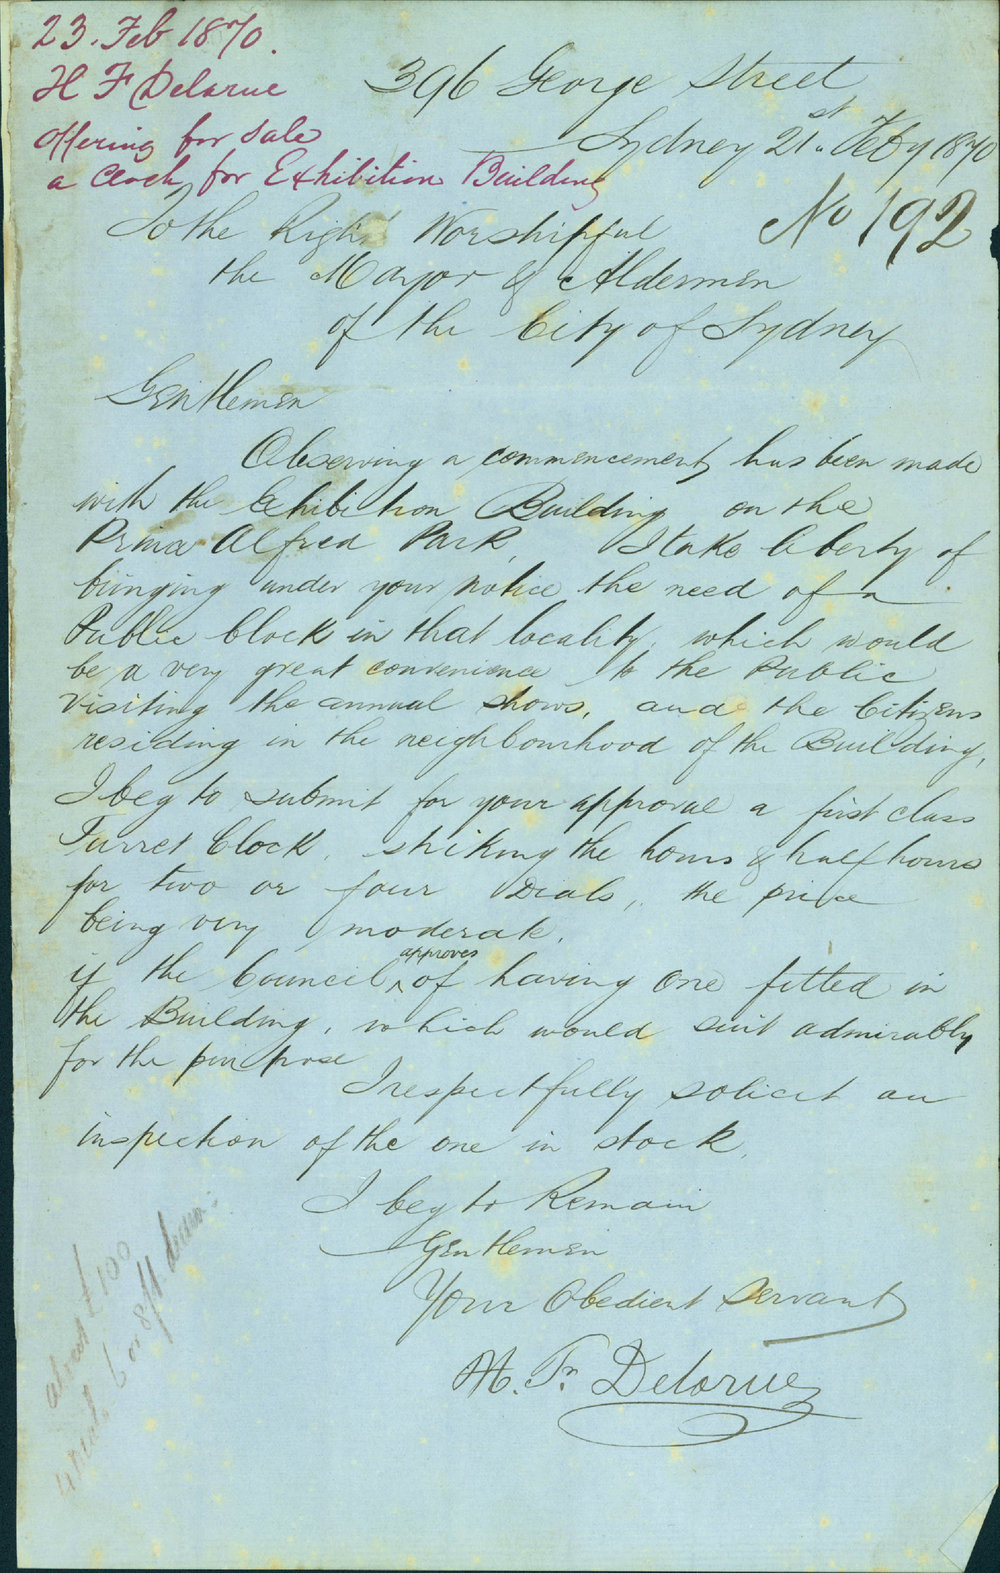 23. Feb 1870.
H F Delarue
offering for sale
a clock for Exhibition Building
396 George Street
Sydney 21st Feby 1870
No 192
To the Right Worshipful
the Mayor & Aldermen
of the City of Sydney
Gentlemen
Observing a commencement has been made
with the Exhibition Building on the
Prince Alfred Park, I take liberty of
bringing under your notice the need of a
Public Clock in that locality, which would
be a very great convenience to the Public
visiting the annual shows, and the Citizens
residing in the neighbourhood of the Building,
I beg to submit for your approval a first class
Turret Clock, striking the hours & half hours
for two or four Dials, the price
being very moderate.
if the Council approves of having one fitted in
the Building, which would suit admirably
for the purpose
I respectfully solicit an
inspection of the one in stock.
I beg to Remain
Gentlemen
Your Obedient Servant
H. F. Delarue
about £100
4 dials 6 or 8 ft diam.